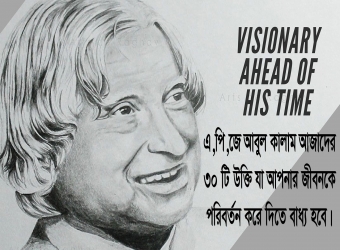 VISIONARY
AHEAD OF
HIS TIME
এ,পি,জে আবুল কালাম আজাদের
৩০ টি উক্তি যা আপনার জীবনকে
পরিবর্তন করে দিতে বাধ্য হবে।